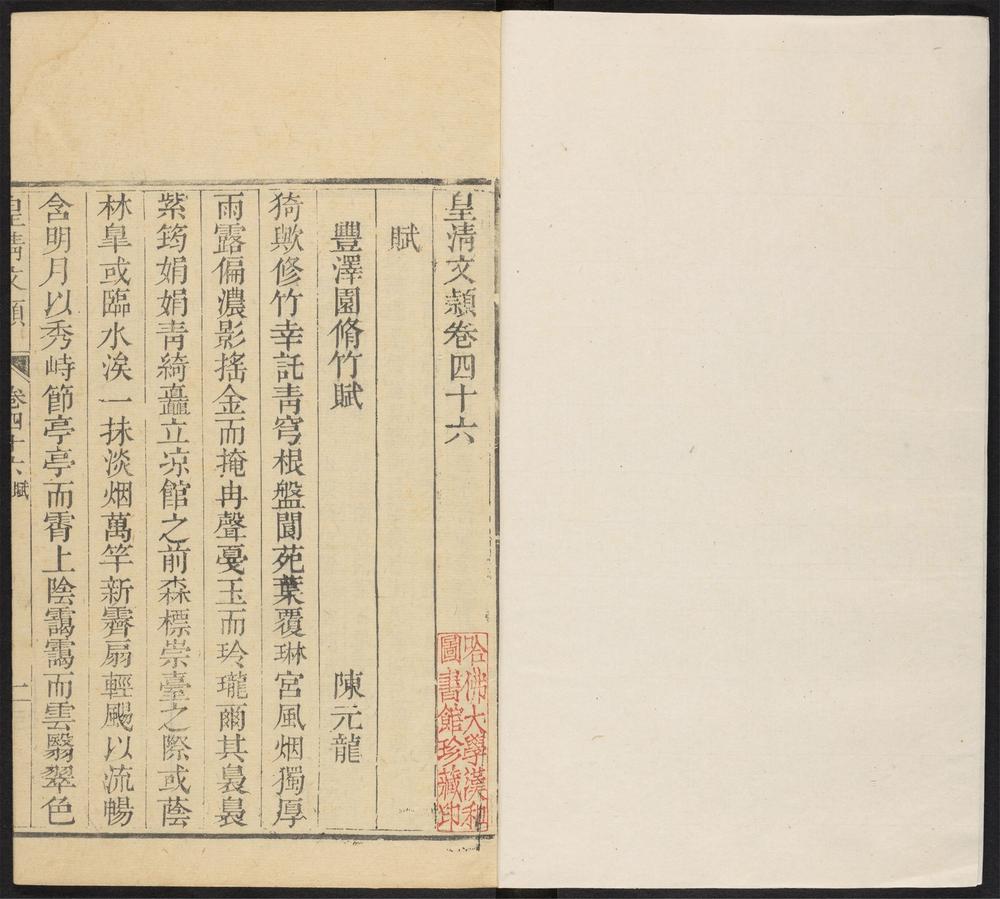 皇淸文穎卷四十六
賦
豐澤園脩竹賦
陳元龍
猗歟修竹幸託靑穹根盤閬苑葉覆琳宮風烟獨厚
雨露偏濃影搖金而掩冉聲戞玉而玲瓏爾其裊裊
紫筠娟娟靑綺矗立凉館之前森標崇臺之際或蔭
林臯或臨水涘一抹淡烟萬竿新霽扇輕颸以流暢
含明月以秀峙節亭亭而霄上陰靄靄而雲翳翠色
皇淸文穎
卷四十六賦
一
哈佛大學漢和
圖書館珍藏印